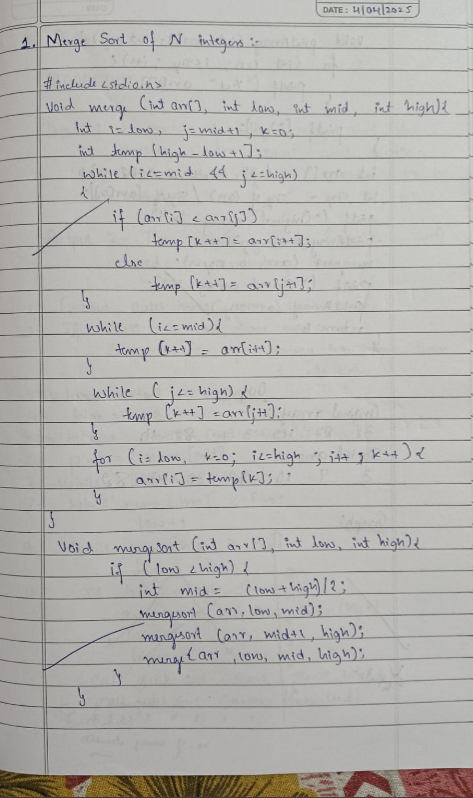 DATE: 4/04/2025
1. Merge Sort of N integers :-
#include <stdio.h>
Void merge (int arr[], int low, int mid, int high){
Int i=low, j=mid+1, k=0;
int temp [high-low+1];
while (i<=mid && j<=high)
{
if (arr[i] < arr[j])
temp [k++] = arr[i++];
else
temp [k++] = arr[j++];
}
while (i<=mid){
temp [k++] = arr[i++];
}
while (j<=high) {
temp [k++] = arr[j++];
}
for (i=low, k=0; i<=high ; i++ , k++) {
arr[i] = temp[k];
}
}
Void mergesort (int arr[], int low, int high){
if (low < high) {
int mid = (low + high)/2;
mergesort (arr, low, mid);
mergesort (arr, mid+1, high);
merge(arr, low, mid, high);
}
}